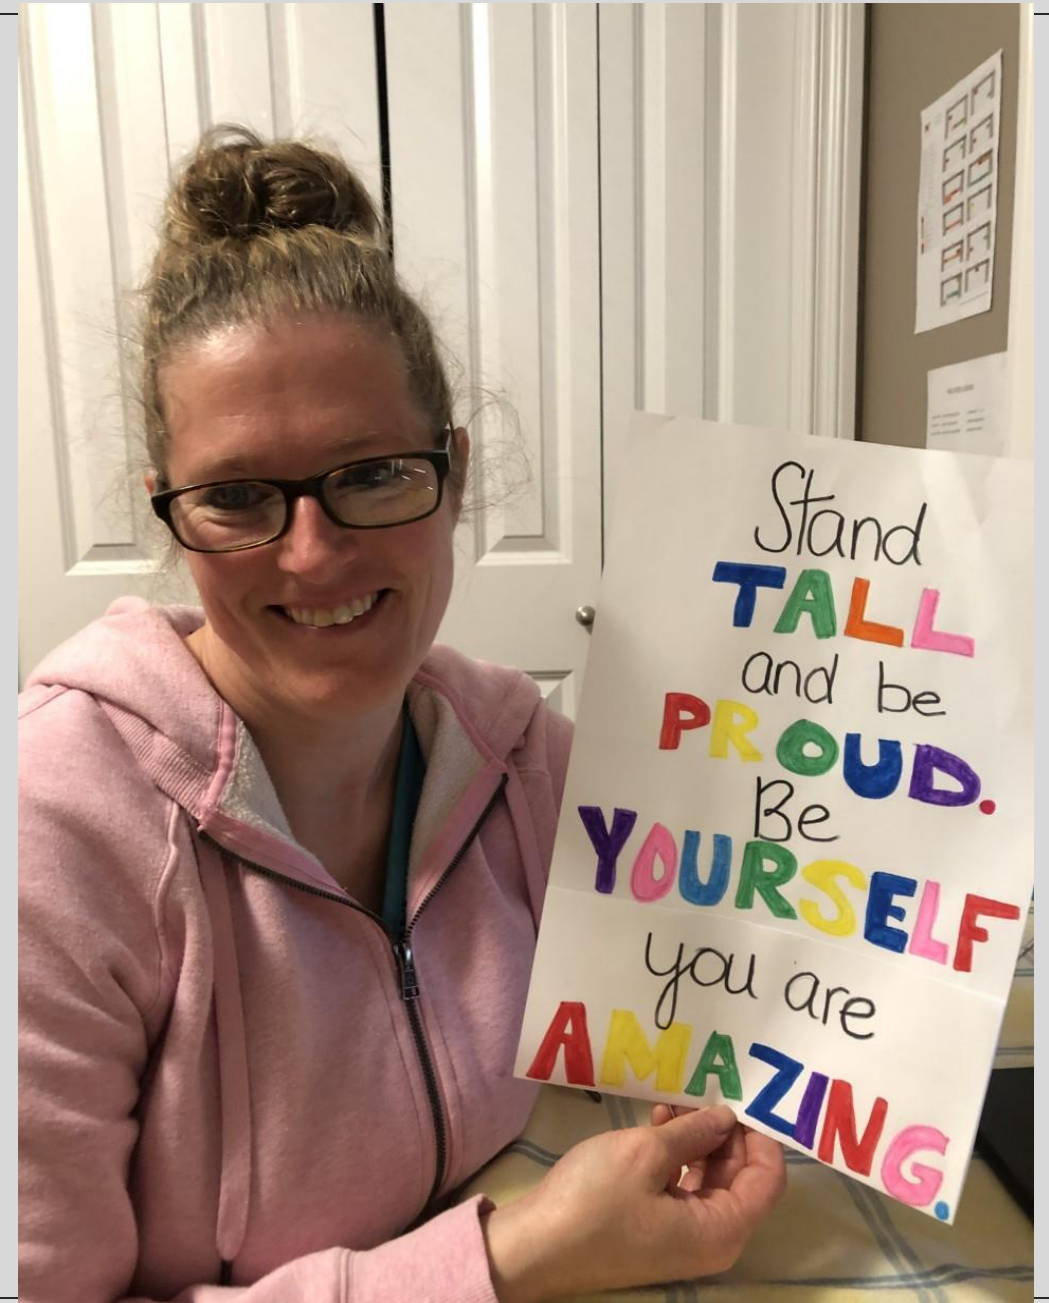 Stand
TALL
and be
PROUD.
Be
YOURSELF
you are
AMAZING.